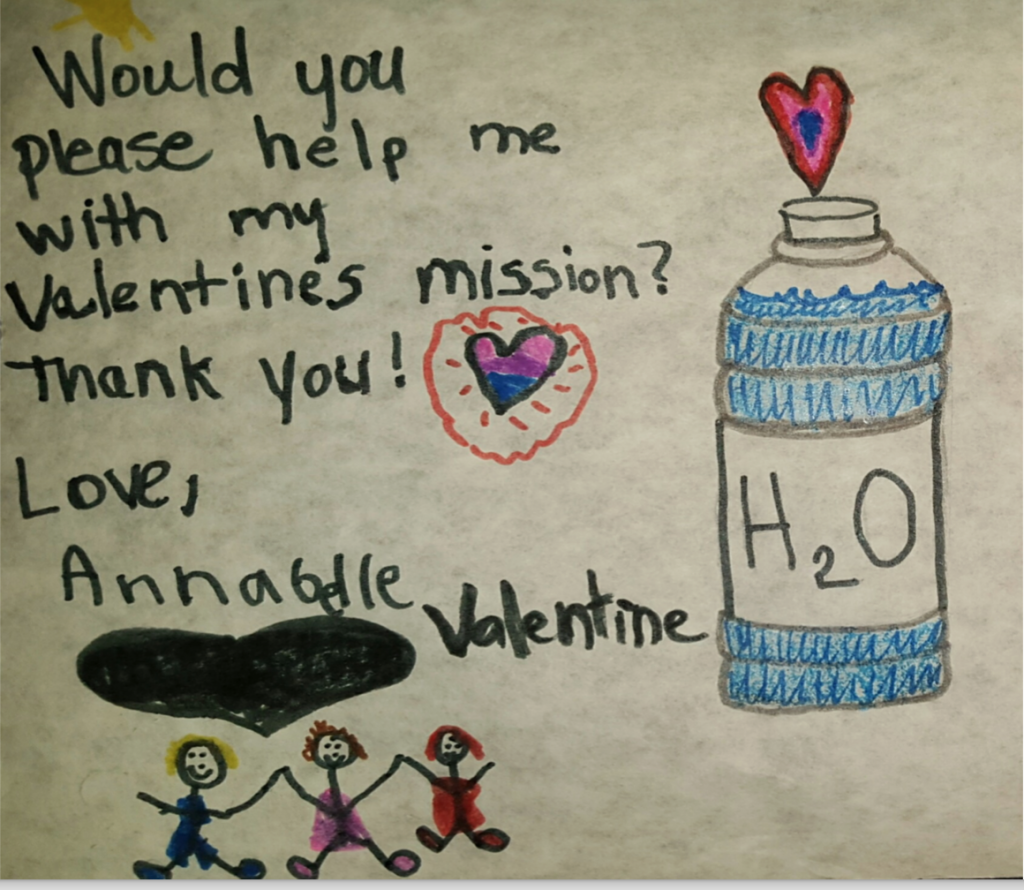 Would you
please help me
with my
Valentines mission?
Thank you!
Love,
Annabelle
Valentine
H₂O